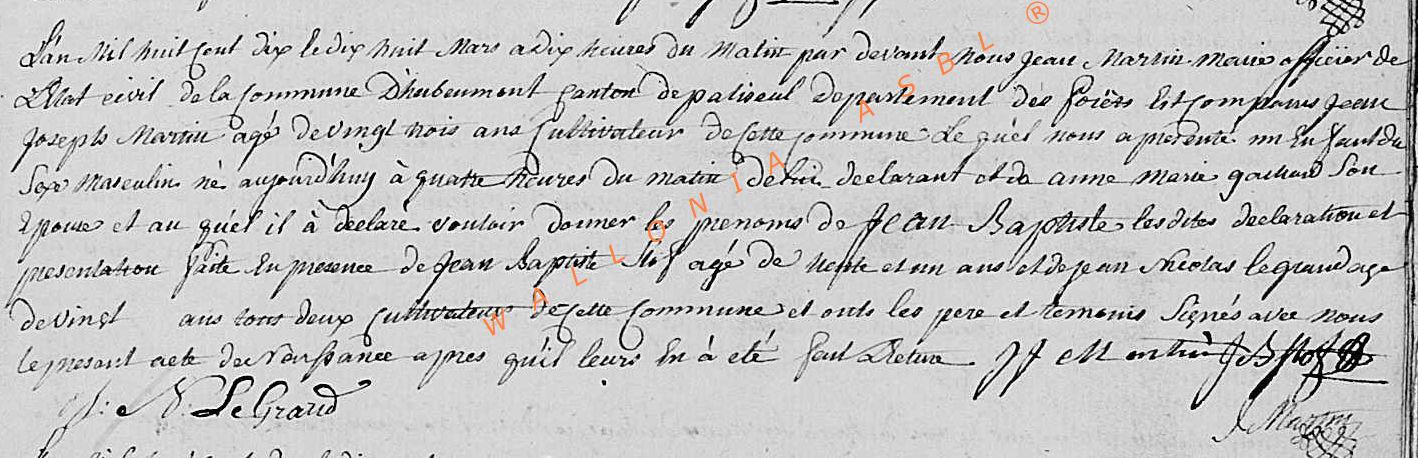 L'an Mil huit Cent dix le dix huit Mars a dix heures du Matin par devant Nous Jean Martin Maire officier de
L'Etat civil de la Commune D'herbeumont Canton de paliseul departement des forêts Est Comparus Jean
Joseph Martin agé de vingt trois ans Cultivateur de Cette Commune Le quel nous a presenté un Enfant du
Sexe Masculin né aujourd'huy à quatre heures du matin de lui declarant et de anne marie Son
Epouse et au quel il à declaré vouloir donner les prenoms de Jean Baptiste lesdites declaration et
presentation faite En presence de Jean Baptiste agé de trente et un ans et de jean Nicolas legrand age
de vingt ans tous deux Cultivateurs de Cette Commune et onts les pere et temoins Signés avec nous
le present acte de Naissance apres qu'il leurs En à été fait Lecture JJ Martin
J: N: LeGrand
J Martin
WALLONIA ASBL ®